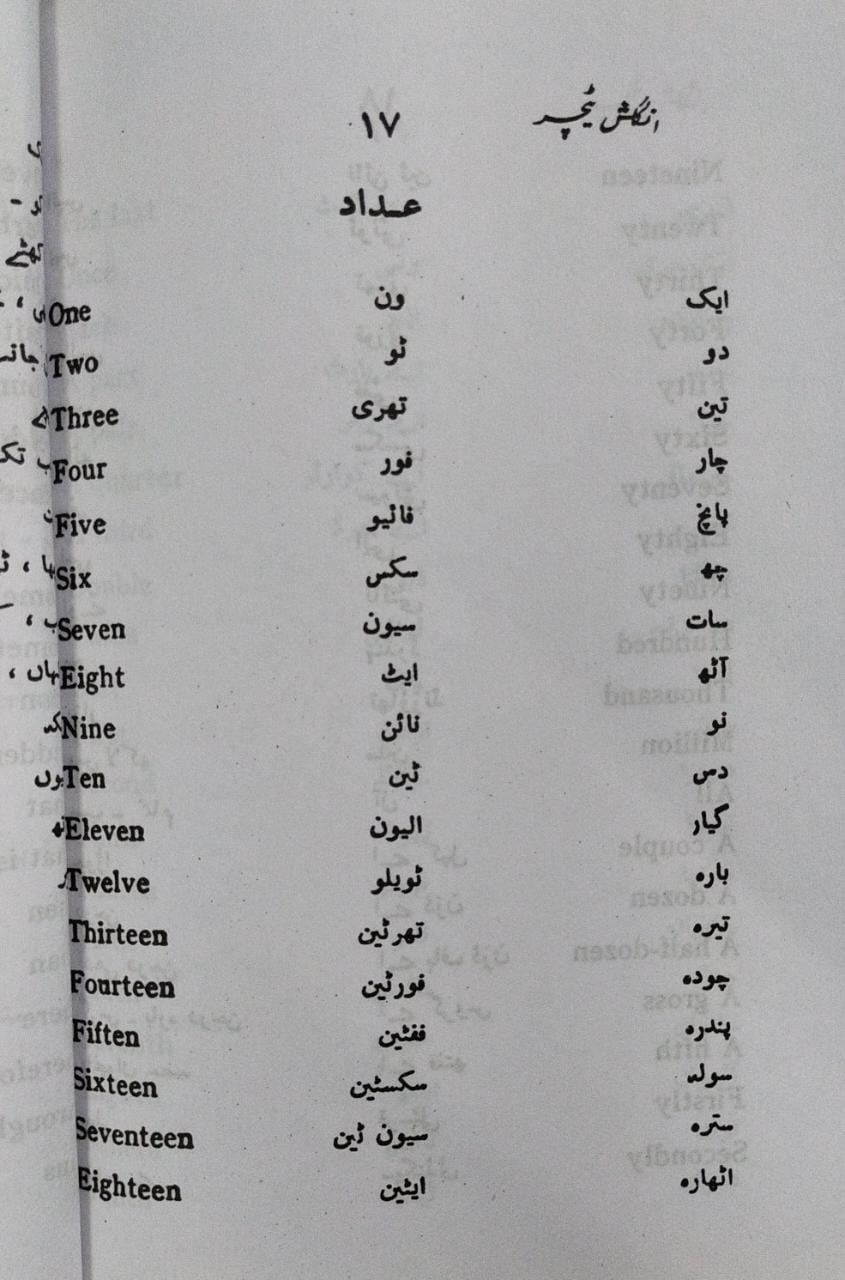 انگلش ٹیچر ۱۷
عداد
ایک ون One
دو ٹو Two
تین تھری Three
چار فور Four
پانچ فائیو Five
چھ سکس Six
سات سیون Seven
آٹھ ایٹ Eight
نو نائن Nine
دس ٹین Ten
گیار الیون Eleven
بارہ ٹویلو Twelve
تیرہ تھرٹین Thirteen
چودہ فورٹین Fourteen
پندرہ ففٹین Fiften
سولہ سکسٹین Sixteen
سترہ سیون ٹین Seventeen
اٹھارہ ایٹین Eighteen